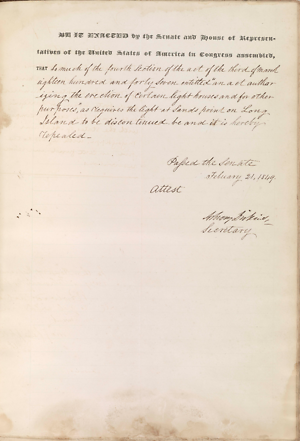 BE IT ENACTED by the Senate and House of Represen-
tatives of the United States of America in Congress assembled,
THAT So much of the fourth section of the act of the third of march
eighteen hundred and forty seven entitled "an act author
izing the erection of certain light houses and for other
purposes," as requires the light at Sands point on Long
Island to be discontinued be and it is hereby
repealed—
Passed the Senate
February 21, 1849.
Attest
Secretary